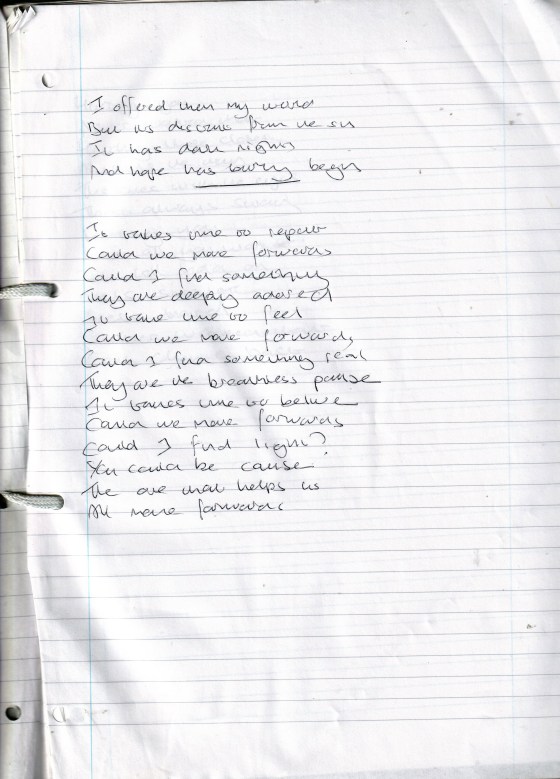 I offered them my word
But as distant from the sun
It has dark nights
And hope has barely begun
It takes time to repair
Could we move forwards
Could I find something
They are deeply adored
It take time to feel
Could we move forwards
Could I find something real
They are the breathless pause
It takes time to believe
Could we move forwards
Could I find light?
You could be cause
The one that helps us
All move forwards